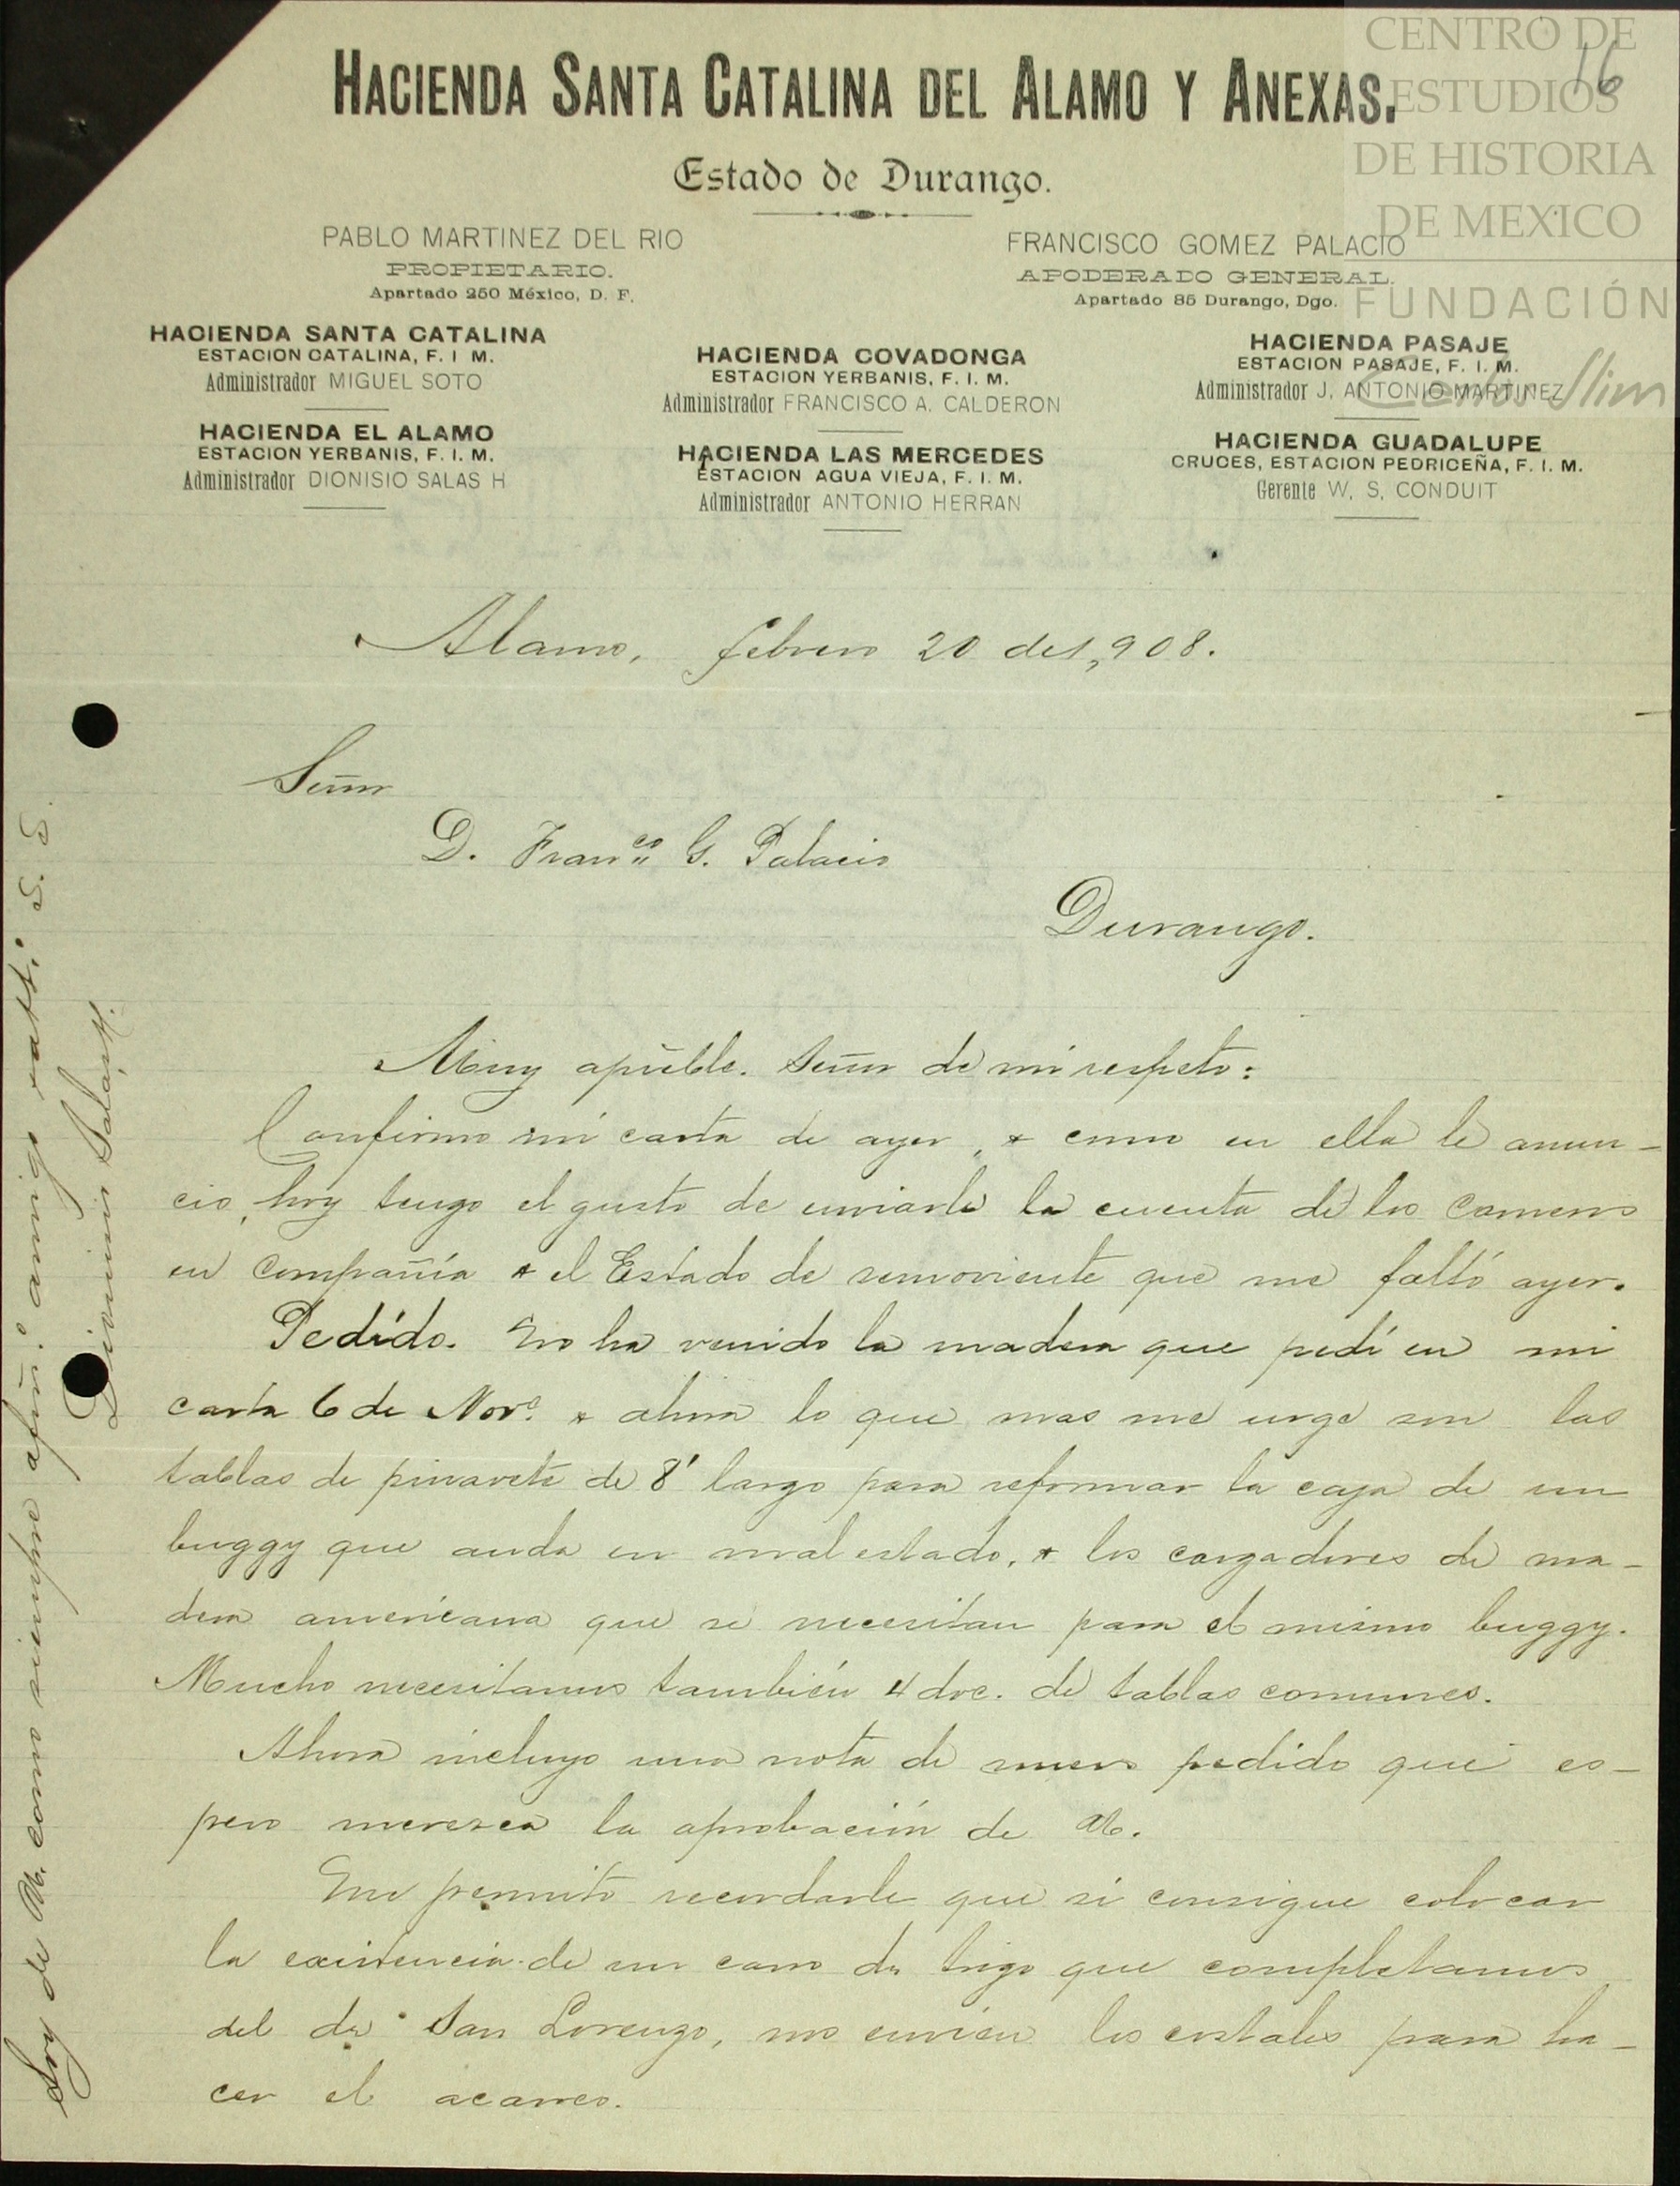 CENTRO DE
ESTUDIOS
DE HISTORIA
DE MEXICO
FUNDACIÓN
Carlos Slim
16
HACIENDA SANTA CATALINA DEL ALAMO Y ANEXAS.
Estado de Durango.
PABLO MARTINEZ DEL RIO
PROPIETARIO.
Apartado 250 México, D. F.
FRANCISCO GOMEZ PALACIO
APODERADO GENERAL.
Apartado 85 Durango, Dgo.
HACIENDA SANTA CATALINA
ESTACION CATALINA, F. I M.
Administrador MIGUEL SOTO
HACIENDA EL ALAMO
ESTACION YERBANIS, F. I. M.
Administrador DIONISIO SALAS H
HACIENDA COVADONGA
ESTACION YERBANIS, F. I. M.
Administrador FRANCISCO A. CALDERON
HACIENDA LAS MERCEDES
ESTACION AGUA VIEJA, F. I. M.
Administrador ANTONIO HERRAN
HACIENDA PASAJE
ESTACION PASAJE, F. I. M.
Administrador J. ANTONIO MARTINEZ
HACIENDA GUADALUPE
CRUCES, ESTACION PEDRICEÑA, F. I. M.
Gerente W. S. CONDUIT
Alamo, febrero 20 de 1,908.
Señor
D. Franco G. Palacio
Durango.
Muy apble. Señor de mi respeto:
Confirmo mi carta de ayer, & como en ella le anun-
cio, hoy tengo el gusto de enviarle la cuenta de los Carneros
en Compañía & el Estado de semoviente que me faltó ayer.
Pedido. No ha venido la madera que pedí en mi
carta 6 de Nove. & ahora lo que mas me urge son las
tablas de pinavete de 8' largo para reformar la caja de un
buggy que anda en mal estado, & los cargadores de ma-
dera americana que se necesitan para el mismo buggy.
Mucho necesitamos también 4 doc. de tablas comunes.
Ahora incluyo una nota de nuevo pedido que es-
pero meresca la aprobación de U.
Me permito recordarle que si consigue colocar
la existencia de un carro de trigo que completamos
del de San Lorenzo, nos envíen los costales para ha-
cer el acarreo.
Soy de U. como siempre afmo. amigo y atto. S. S.
Dionisio Salas H.